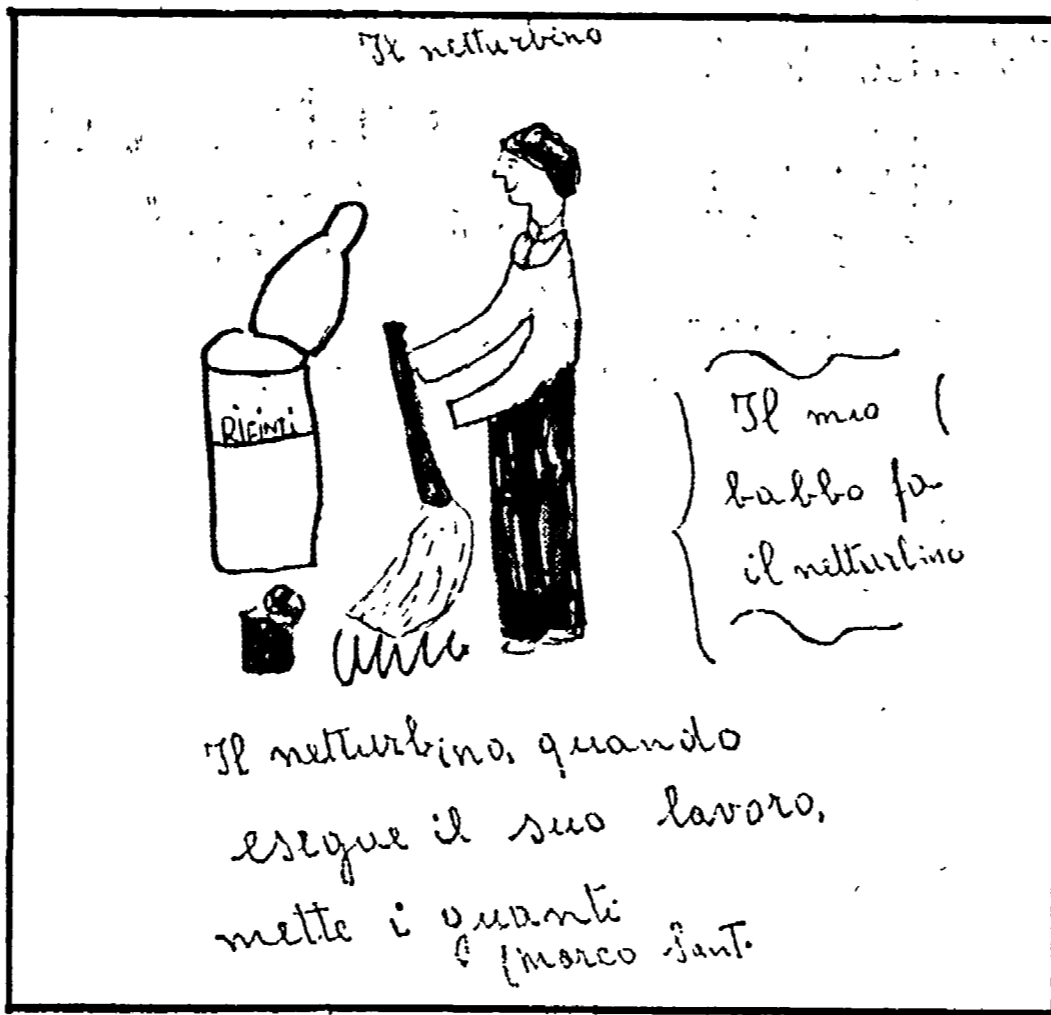 Il netturbino
RIFINTI
Il mio
babbo fa
il netturbino
Il netturbino, quando
esegue il suo lavoro,
mette i guanti
(Marco Sant.